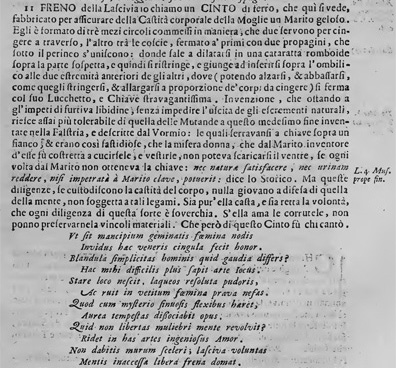 II FRENO della Lascivia io chiamo un CINTO di ferro, che quì si vede,
fabbricato per assicurare della Castità corporale della Moglie un Marito geloso.
Egli è formato di trè mezi circoli commessi in maniera, che due servono per cin-
gere a traverso, l'altro trà le coscie, fermato a' primi con due propagini, che
sotto il perineo s'uniscono; donde fale a dilatarsi in una cataratta romboide
sopra la parte sospetta, e quindi si ristringe, e giunge ad inserirsi sopra l'ombi-
lico alle due estremità anteriori de gli altri, dove (potendo alzarsi, & abbassarsi,
come quegli stringersi, & allargarsi a proporzione de' corpi da cingere) si ferma
col suo Lucchetto, e Chiave stravagantissima. Invenzione, che ostando a
gl'impeti di furtiva libidine, senza impedire l'uscita de gli escrementi naturali,
riesce assai più tolerabile di quella delle Mutande a questo medesimo fine inven-
tate nella Falstria, e descritte dal Vormio: le quali serravansi a chiave sopra un
fianco; & erano così fastidiose, che la misera donna, che dal Marito inventore
d'esse fù costretta a cucirsele, e vestirle, non poteva scaricarsi il ventre, se ogni
volta dal Marito non otteneva la chiave: nec naturæ satisfacere, nec urinam
reddere, nisi impetratâ à Marito clave, potueris: dice lo Storico. Ma queste
diligenze, se custodiscono la castità del corpo, nulla giovano a difesa di quella
della mente, non soggetta a tali legami. Sia pur' ella casta, e sia retta la volontà,
che ogni diligenza di questa sorte è soverchia. S'ella ama le corrutele, non
ponno preservarnela vincoli materiali. Che però di questo Cinto fù chi cantò.
L. 4. Mus.
prope fin.
Ut sit mancipium geminatis fœmina nodis
Invidus hac veneris cingula fecit honor.
Blandula simplicitas hominis quid gaudia differs?
Hac mihi difficilis plus sapit arte locus.
Stare loco nescit, laqueos resoluta pudoris,
Ac ruit in vetitum fœmina prava nefas.
Quod cum mysterio finnosis flexibus hæret;
Aurea tempestas dissociabit opus.
Quid non libertas muliebri mente revolvit?
Ridet in has artes ingeniosus Amor.
Non dabitis murum sceleri; lasciva voluntas
Mentis inaccessa libera frena domat.